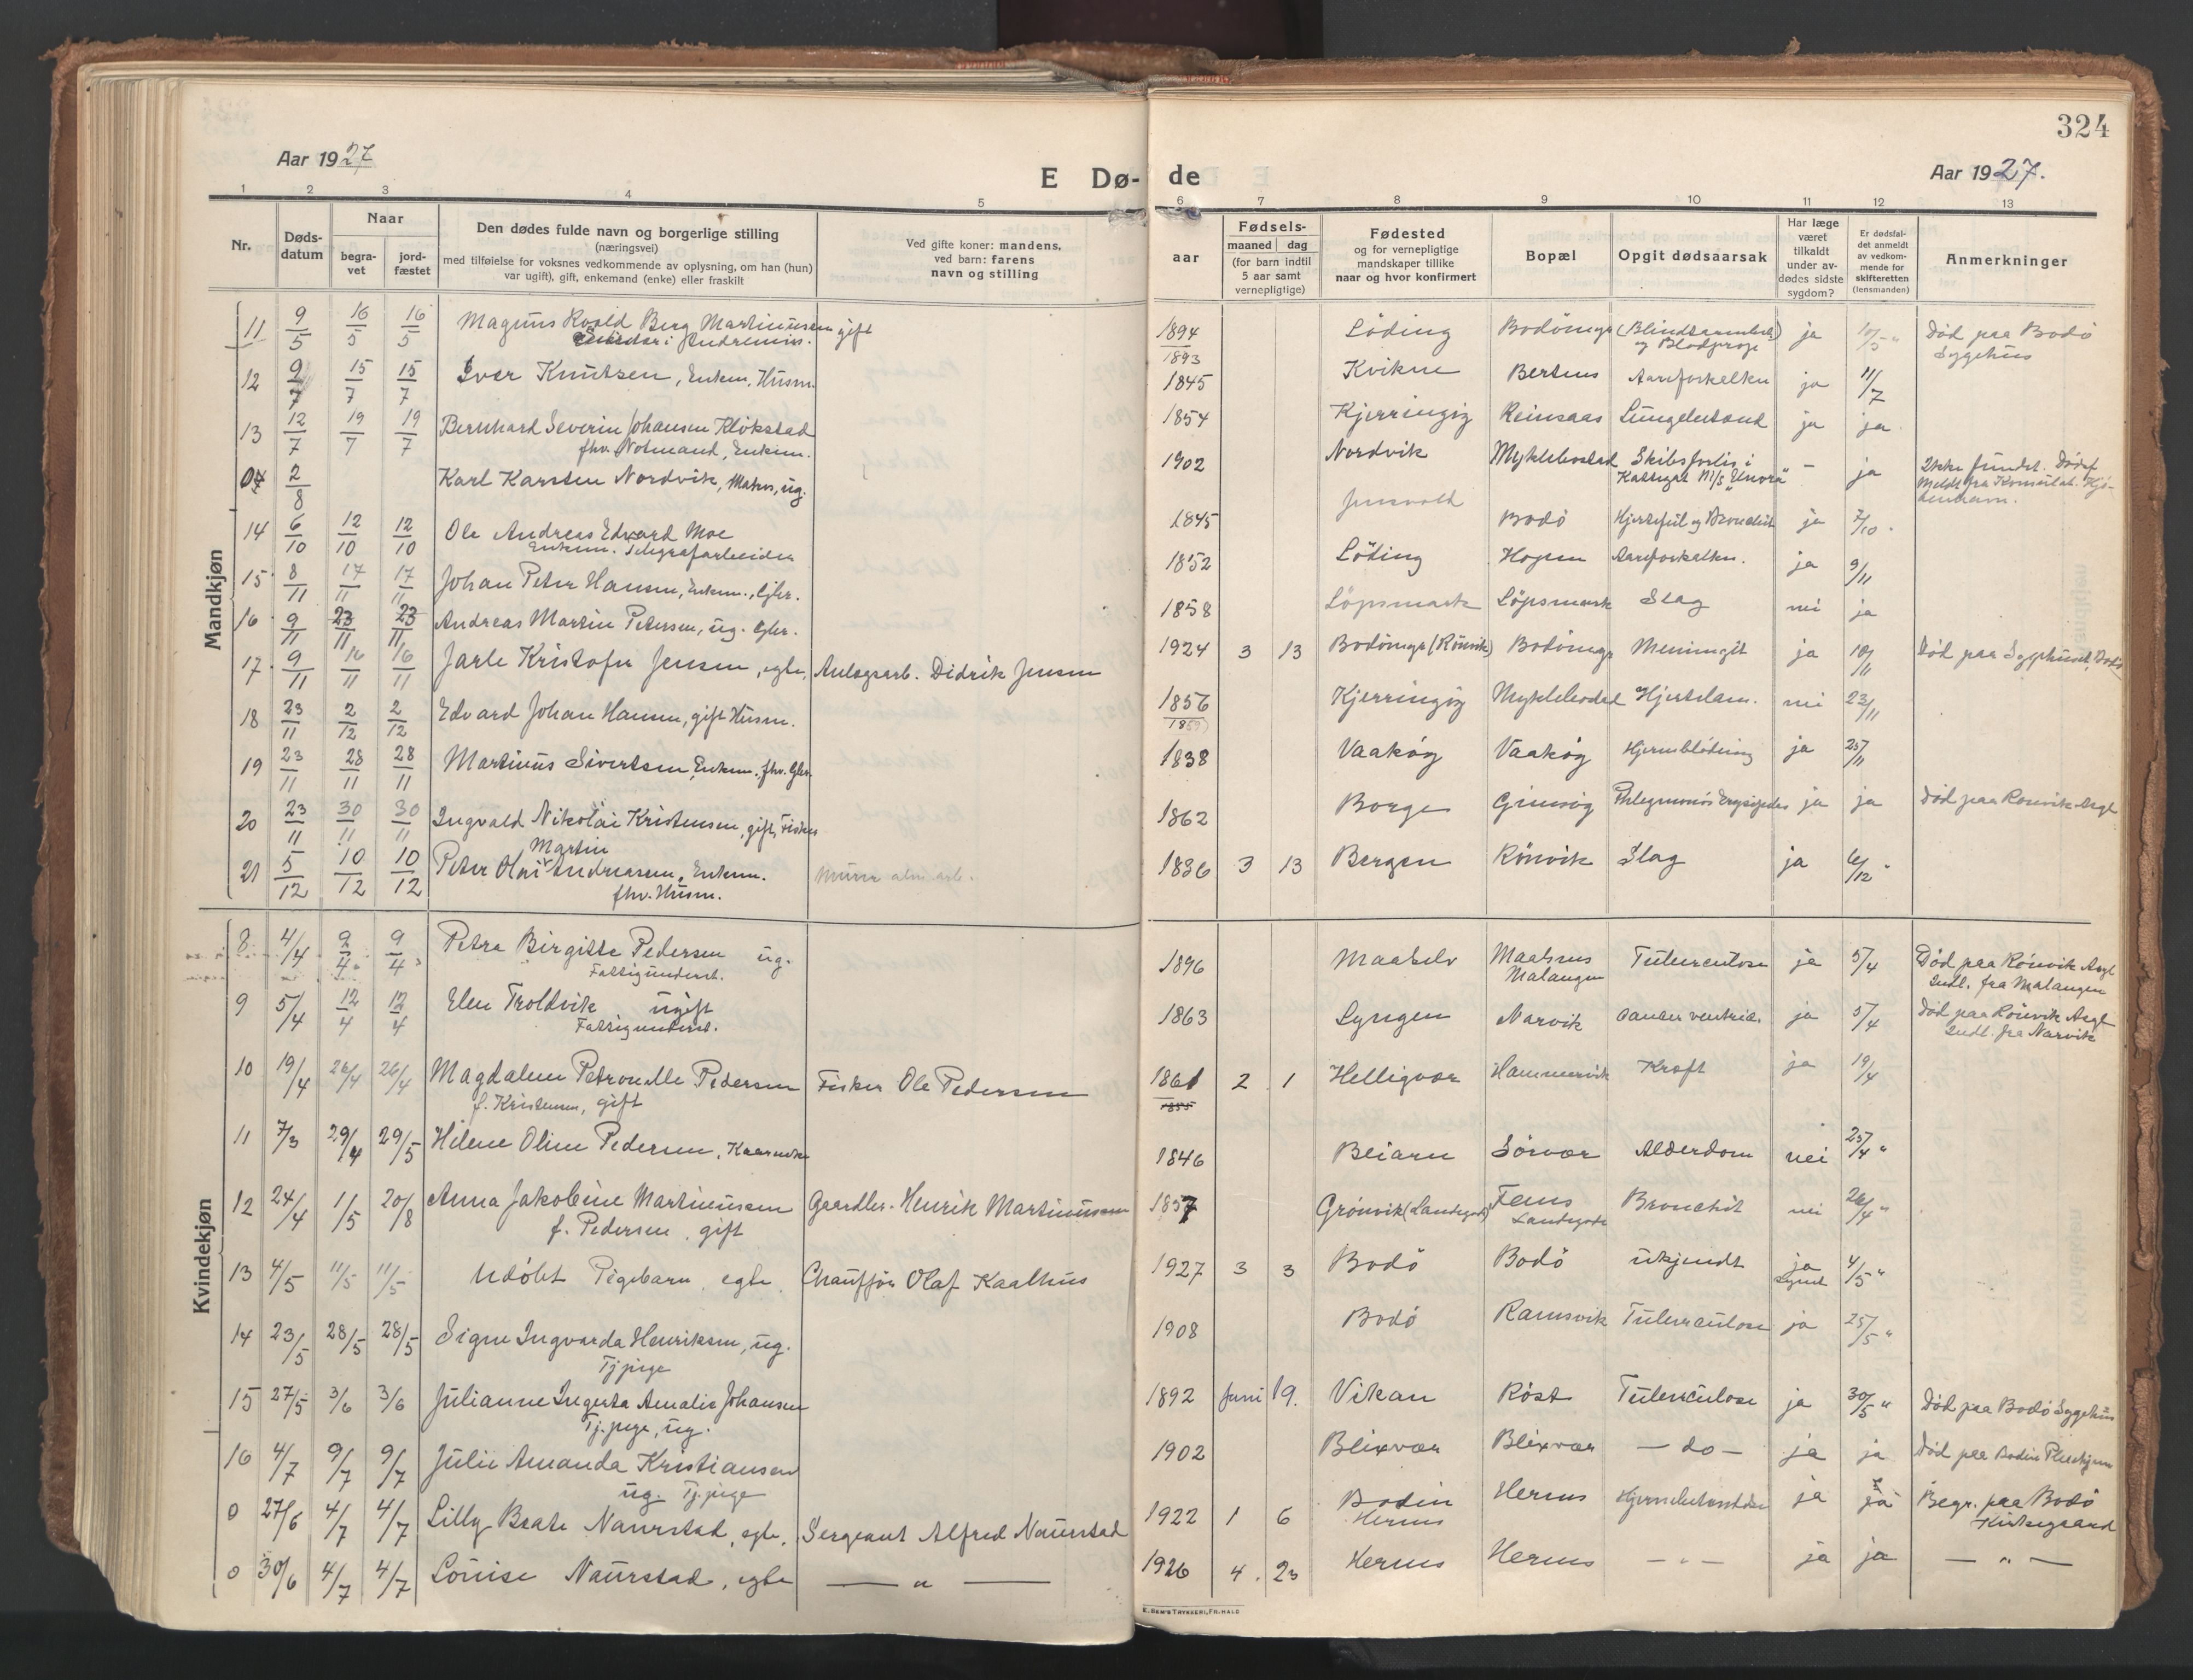 324
Aar 1927
E Dø- de
Aar 1927.
1 2 3 4 5 6 7 8 9 10 11 12 13
Nr.
Døds-datum
Naar
begra-vet
jord-fæstet
Den dødes fulde navn og borgerlige stilling
(næringsvei)
med tilføielse for voksnes vedkommende av oplysning, om han (hun)
var ugift), gift, enkemand (enke) eller fraskilt
Ved gifte koner: mandens,
ved barn: farens
navn og stilling
aar
Fødsels-
maaned dag
(for barn indtil
5 aar samt
vernepligtige)
Fødested
og for vernepligtige
mandskaper tillike
naar og hvor konfirmert
Bopæl
Opgit dødsaarsak
Har læge
været
tilkaldt
under av-
dødes sidste
sygdom?
Er dødsfal-
det anmeldt
av vedkom-
mende for
skifteretten
(lensmanden)
Anmerkninger
Mandkjøn
11 9/5 16/5 16/5 Magnus Roald Berg Martinussen gift 1894 Löding Bodömyr ja Död paa Bodö
1893 og Sygehus
12 9/7 15/7 15/7 Iver Knutsen, Enkem. Husm. 1845 Kvikne Bertnes Aareforkalkn ja 11/7
13 12/7 19/7 19/7 Bernhard Severin Johansen Klokstad 1854 Kjerringöy Reinsaas Lungebetænd ja ja
fhv. Notmand, Enkem.
2/8 Karl Karsten Nordvik, Matros, ug. 1902 Nordvik Myklebostad Skibsforlis i - ja Ikke fundet. Dödsf.
Kattegat M/S "Elnora" Meldt fra Konsulat. Kjö-
benhavn.
14 6/10 12/10 12/10 Ole Andreas Edvard Moe 1845 Junsvold Bodö Hjertefeil og Bronchit ja 7/10.
Enkem. Telegrafarbeider
15 8/11 17/11 17/11 Johan Peter Hansen, Enkem., Gbr. 1852 Löding Hogen Aareforkalkn. ja 9/11
16 9/11 23/11 23/11 Andreas Martin Petersen, ug. Gbr. 1858 Löpsmark Löpsmark Slag nei ja
17 9/11 16/11 16/11 Jarle Kristofer Jensen, egte, Anlegsarb. Didrik Jensen 1924 3 13 Bodömyr (Rönvik) Bodömyr Meningit ja 10/11 Död paa Sygehuset, Bodö
18 23/11 2/12 2/12 Edvard Johan Hansen, gift Husm. 1856 Kjerringöy Myklebostad Hjertelam. nei 23/11
1859
19 23/11 28/11 28/11 Martinus Sivertsen, Enkem. fhv. Gbr. 1838 Vaaköy Vaaköy Hjerneblödning ja 25/11
20 23/11 30/11 30/11 Ingvald Nikolai Kristensen, gift, Fisker 1862 Borge Grimsöy Phlegmonös Erysipelas ja ja Död paa Rönvik Asyl
Martin
21 5/12 10/12 10/12 Peter Olai Andreasen, Enkem. 1836 3 13 Bergen Rönvik Slag ja 6/12
fhv. Husm.
Kvindekjøn
8 4/4 9/4 9/4 Petra Birgitte Pedersen ug. 1896 Maalselv Maalsnes Tuberculose ja 5/4 Död paa Rönvik Asyl
Fattigunderst. Malangen Indl. fra Malangen
9 5/4 12/4 12/4 Elen Troldvik ugift 1863 Lyngen Narvik cancer ventric. ja 5/4 Död paa Rönvik Asyl
Fattigunderst. Indl. fra Narvik
10 19/4 26/4 26/4 Magdalene Petronelle Pedersen Fisker Ole Pedersen 1861 2 1 Helligvær Hammervik Kræft ja 19/4
f. Kristensen, gift 1855
11 7/3 29/4 29/5 Helene Oline Pedersen, Kaarenke 1846 Beiarn Sörvær Alderdom nei 25/4 "
12 24/4 1/5 20/8 Anna Jakobine Martinussen Gaardbr. Henrik Martinussen 1857 Grönvik (Landegode) Fenes Bronchit nei 26/4 "
f. Pedersen, gift Landegode
13 4/5 11/5 11/5 Udöbt Pigebarn, egte, Chauffør Olaf Kaalhus 1927 3 3 Bodö Bodö ukjendt ja 4/5 "
14 23/5 28/5 28/5 Signe Ingvarda Henriksen, ug. 1908 Bodö Ramsvik Tuberculose ja 25/5 "
Tj.pige
15 27/5 3/6 3/6 Julianne Ingerta Amalie Johansen 1892 Juni 19. Vikan Röst Tuberculose ja 30/5 " Död paa Bodö Sygehus
Tj.pige, ug.
16 4/7 9/7 9/7 Julie Amanda Kristiansen 1902 Blixvær Blixvær - do - ja ja Död paa Bodin Pleiehjem
ug. Tj.pige
0 27/6 4/7 4/7 Lilly Beate Naurstad, egte, Sergeant Alfred Naurstad 1922 1 6 Bodin Hernes Hjernebetændelse ja ja Begr. paa Bodö
Hernes Kirkegaard
0 30/6 4/7 4/7 Louise Naurstad, egte — " — 1926 4. 23 Hernes Hernes — " — ja ja — " —
E. SEM'S TRYKKERI, FR.HALD